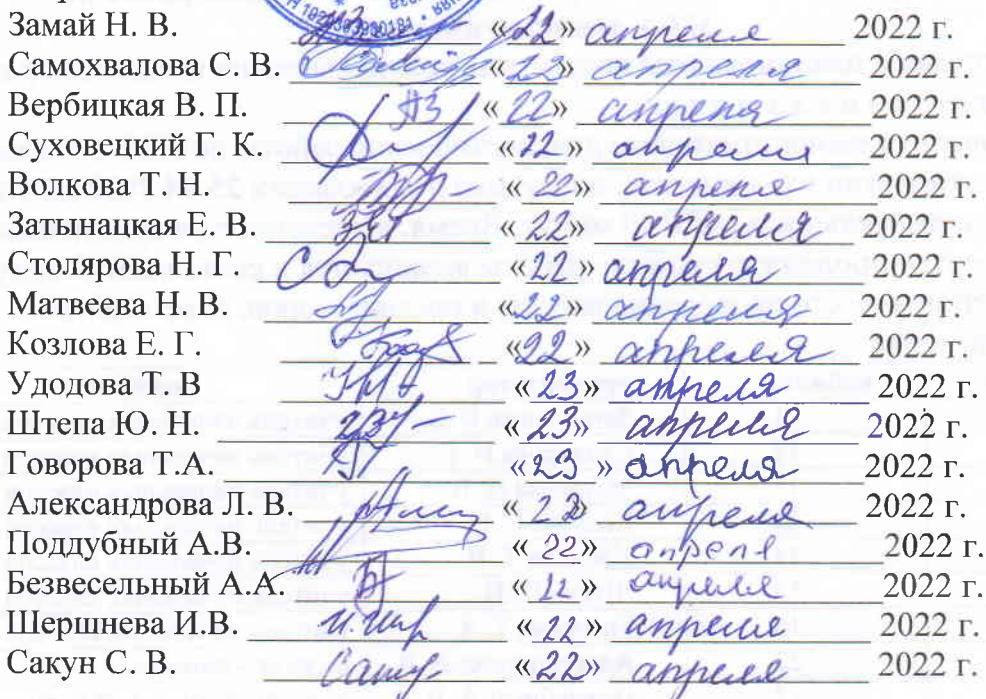 Замай Н. В. «22» апреля 2022 г.
Самохвалова С. В. «23» апреля 2022 г.
Вербицкая В. П. «22» апреля 2022 г.
Суховецкий Г. К. «22» апреля 2022 г.
Волкова Т. Н. «22» апреля 2022 г.
Затынацкая Е. В. «22» апреля 2022 г.
Столярова Н. Г. «22» апреля 2022 г.
Матвеева Н. В. «22» апреля 2022 г.
Козлова Е. Г. «22» апреля 2022 г.
Удодова Т. В «23» апреля 2022 г.
Штепа Ю. Н. «23» апреля 2022 г.
Говорова Т.А. «23» апреля 2022 г.
Александрова Л. В. «23» апреля 2022 г.
Поддубный А.В. «22» апреля 2022 г.
Безвесельный А.А «12» апреля 2022 г.
Шершнева И.В. «22» апреля 2022 г.
Сакун С. В. «22» апреля 2022 г.